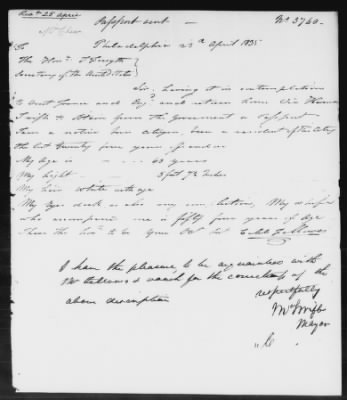 Rec'd 25 April
Passport sent — No 3760 —
To Philadelphia 23d April 1835
The Honl J Forsyth
Secretary of the United States
Sir, Having it in contemplation
to visit France and Engd and return home via Havre
I wish to obtain from the Government a Passport
I am a native born citizen, been a resident of this City
the last Twenty four years
My age is — — 63 years
My hight — 5 feet 7½ Inches
My hair white with age
My Eyes dark as also my complection, My wife
who accompanies me is fifty four years of Age
I have the hon. to be your Obt Svt Caleb Fellowes
I have the pleasure to be acquainted with
Mr Fellowes & vouch for the correctness of the
above description
respectfully
Jno Swift
Mayor